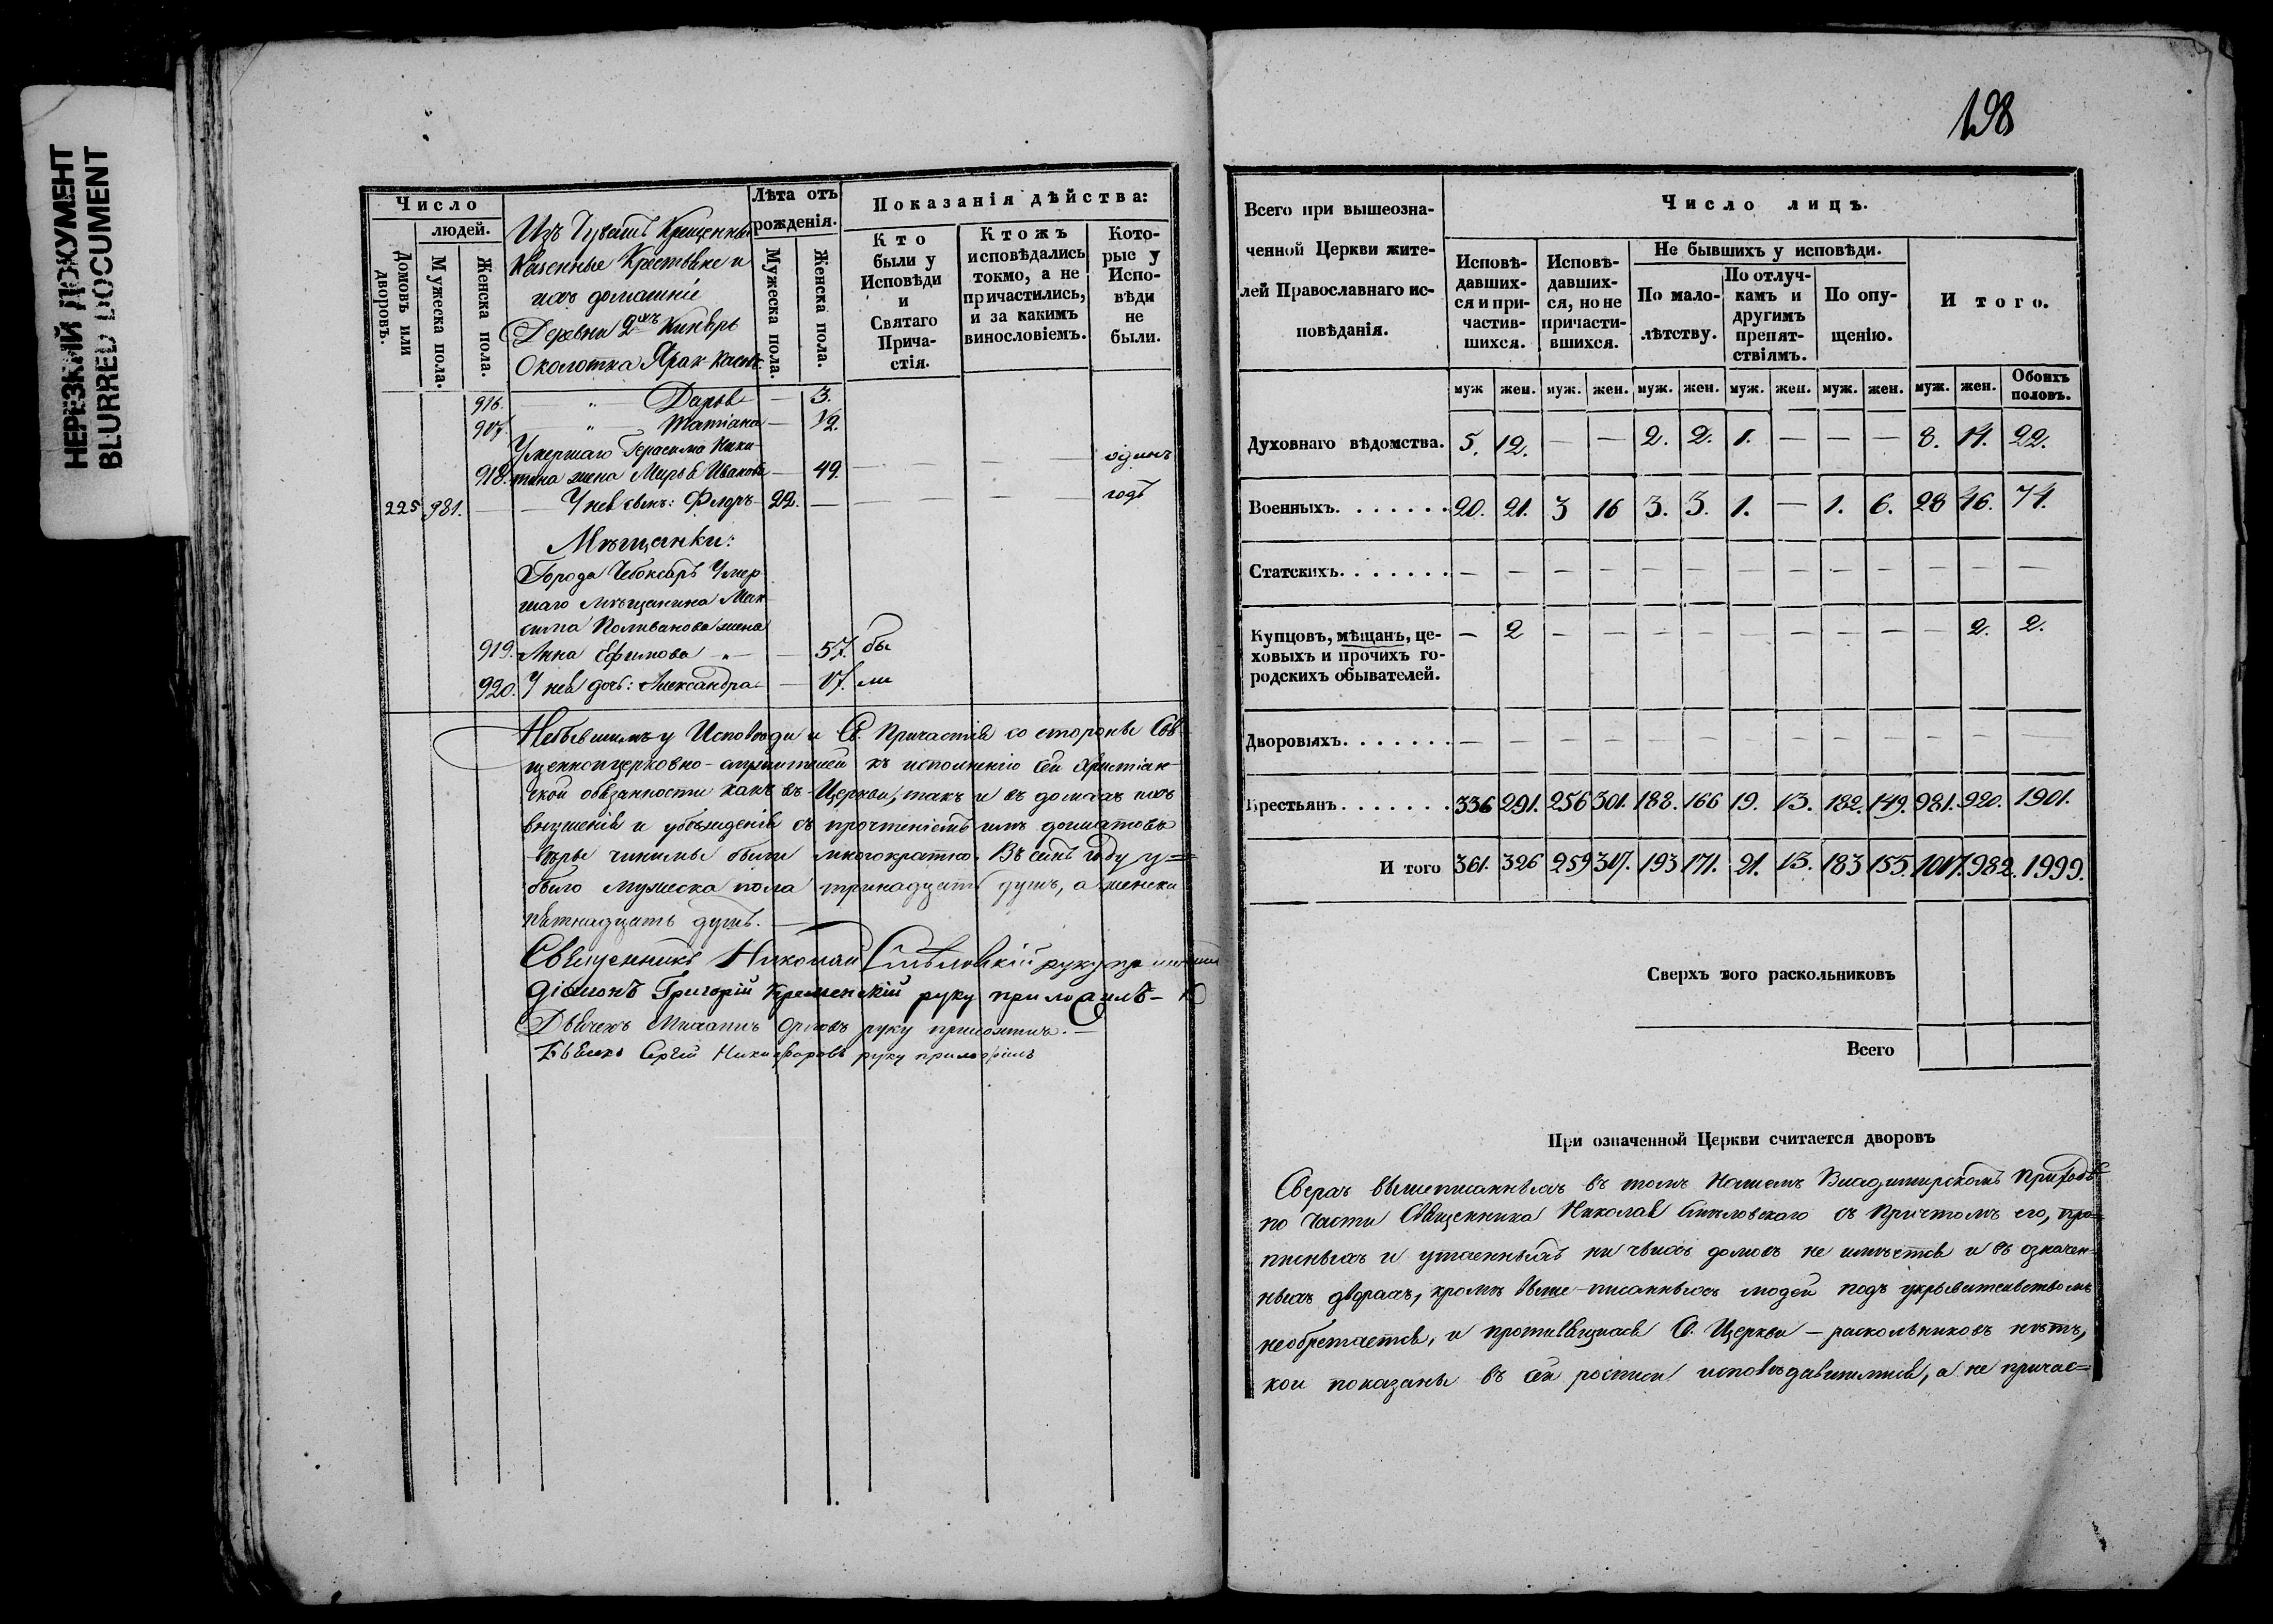 НЕРЕЗКИЙ ДОКУМЕНТ
BLURRED DOCUMENT
Число
людей.
Домовъ или дворовъ.
Мужеска пола.
Женска пола.
Изъ Чувашъ Крещенныхъ
Казенные Крестьяне и
ихъ домашніе
Деревни
Околотка
Лѣта отъ рожденія.
Мужеска пола.
Женска пола.
Показанія дѣйства:
Кто были у Исповѣди и Святаго Прича-стія.
Ктожъ исповѣдались токмо, а не причастились, и за какимъ винословіемъ.
Кото-рые у Испо-вѣди не были.
916. " Дарья — 3.
917. " Татіана — 1/2.
Умершаго Герасима Ники-
918. тина жена Марья Иванова — 49. — — одинъ
225 981. — У нея сынъ: Флоръ — 22. — — — — годъ
Мѣщанки:
Города Чебоксаръ Умер
шаго мѣщанина Мак
сима Поливанова жена
919. Анна Ефимова " — 57. бы
920. У нея дочь: Александра — 17. ли
Небывшимъ у Исповѣди и Св. Причастія со стороны Свя
щенноцерковно-служителей къ исполненію сей Христіан
ской обязанности какъ въ Церкви, такъ и въ домахъ ихъ
внушенія и убѣжденія съ прочтеніемъ имъ догматовъ
вѣры чинимы были многократно. Въ семъ году у=
было мужеска пола тринадцать душъ, а женска
пятнадцать душъ.
Священникъ Николай руку приложилъ
Діаконъ Григорій Кременскій руку приложилъ
Дьячекъ Михаилъ Орловъ руку приложилъ. —
Сергій Никифоровъ руку приложилъ
198
Всего при вышеозна-
ченной Церкви жите-
лей Православнаго ис-
повѣданія.
Число лицъ.
Исповѣ-давших-ся и при-частив-шихся.
Исповѣ-давших-ся, но не причасти-вшихся.
Не бывшихъ у исповѣди.
По мало-лѣтству.
По отлуч-камъ и другимъ препят-ствіямъ.
По опу-щенію.
Итого.
муж жен. муж. жен. муж. жен. муж. жен. муж. жен. муж. жен. Обоихъ половъ.
Духовнаго вѣдомства. 5. 12. — — 2. 2. 1. — — — 8. 14. 22.
Военныхъ. . . . . . . 20. 21. 3 16 3. 3. 1. — 1. 6. 28 46. 74.
Статскихъ. . . . . . . — — — — — — — — — — — — —
Купцовъ, мѣщанъ, це-ховыхъ и прочихъ го-родскихъ обывателей. — 2 — — — — — — — — — 2. 2.
Дворовыхъ. . . . . . . — — — — — — — — — — — — —
Крестьянъ. . . . . . . 336 291. 256 301. 188. 166 19. 13. 182. 149. 981. 920. 1901.
И того 361. 326 259 317. 193 171. 21. 13. 183 155. 1017. 982. 1999.
Сверхъ того раскольниковъ
Всего
При означенной Церкви считается дворовъ
Сверхъ вышеписанныхъ въ томъ Нашемъ Владимирскомъ Приходѣ
по части Священника Николая съ Причтомъ его, про=
писныхъ и утаенныхъ ни чьихъ домовъ не имѣется и въ означен-
ныхъ дворахъ, кромѣ Выше-писанныхъ людей подъ укрывательствомъ
необретается, и противящихся Св. Церкви — раскольниковъ нѣтъ,
кои показаны въ сей росписи исповѣдавшимися, а не причас=